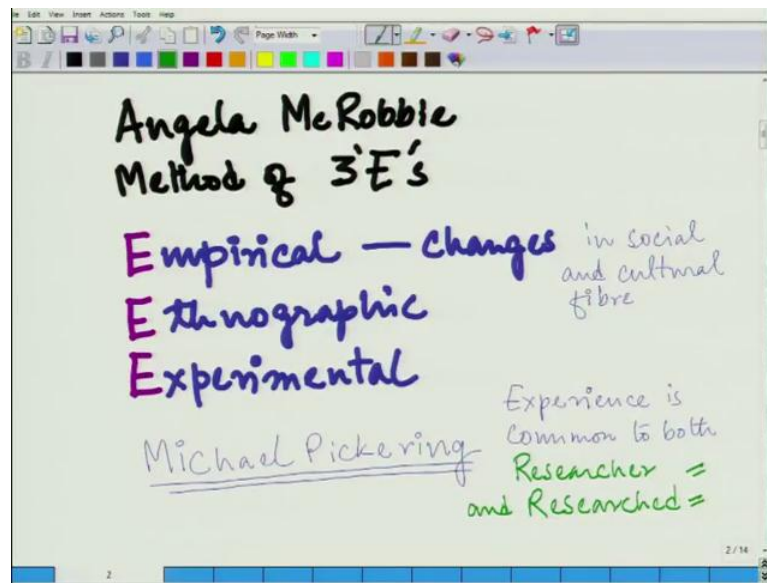 Edit View Insert Actions Tools Help
Page Width
B I
Angela McRobbie
Method of 3'E's
Empirical — changes in social
and cultural
fibre
Ethnographic
Experimental
Michael Pickering
Experience is
common to both
Researcher =
and Researched =
2 / 14
2